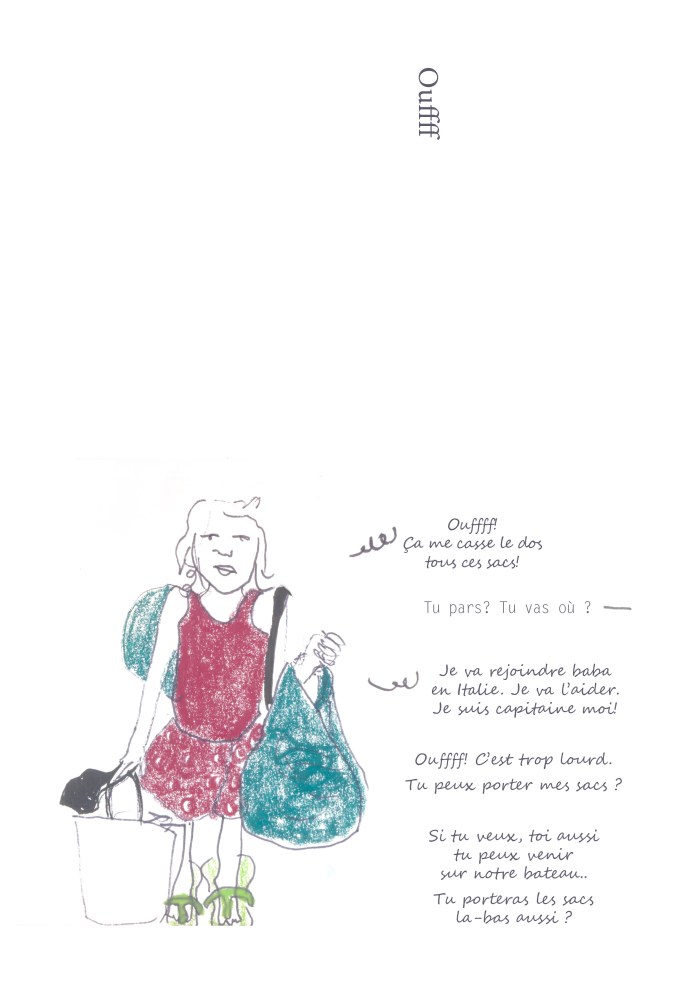 Ouffff
Ouffff!
Ça me casse le dos
tous ces sacs!
Tu pars? Tu vas où ?
Je va rejoindre baba
en Italie. Je va l'aider.
Je suis capitaine moi!
Ouffff! C'est trop lourd.
Tu peux porter mes sacs ?
Si tu veux, toi aussi
tu peux venir
sur notre bateau..
Tu porteras les sacs
la-bas aussi ?